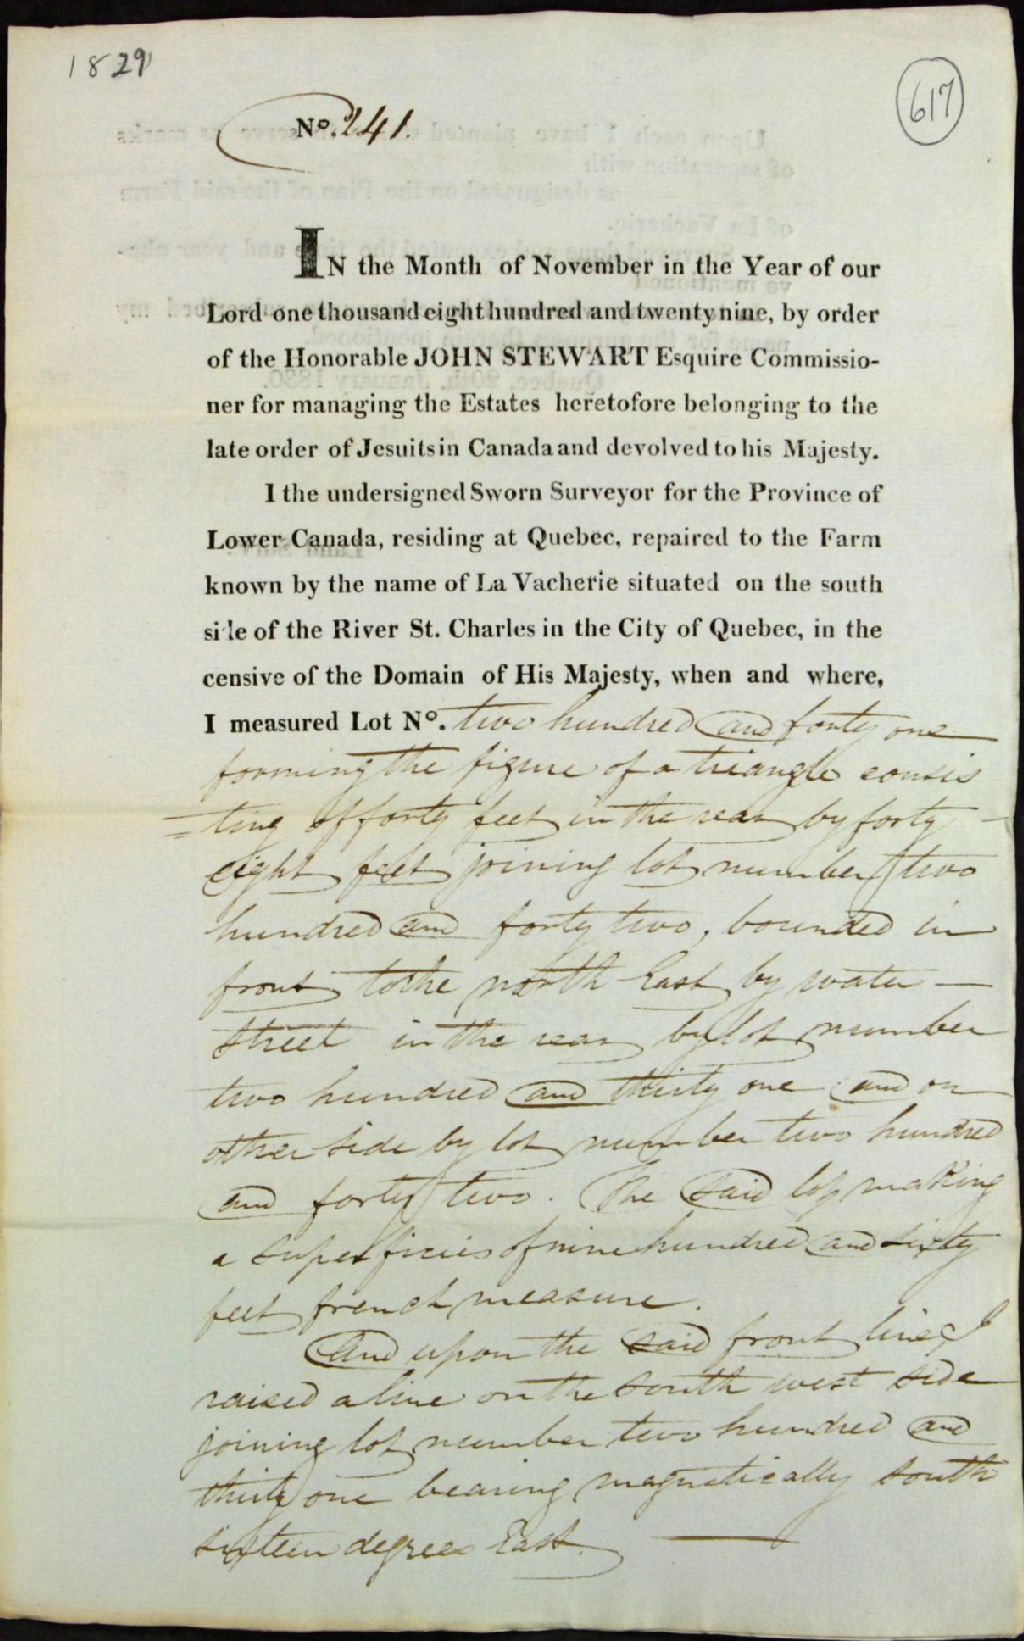 1829
617
No. 241.
IN the Month of November in the Year of our
Lord one thousand eight hundred and twenty nine, by order
of the Honorable JOHN STEWART Esquire Commissio-
ner for managing the Estates heretofore belonging to the
late order of Jesuits in Canada and devolved to his Majesty.
I the undersigned Sworn Surveyor for the Province of
Lower Canada, residing at Quebec, repaired to the Farm
known by the name of La Vacherie situated on the south
side of the River St. Charles in the City of Quebec, in the
censive of the Domain of His Majesty, when and where,
I measured Lot No. two hundred and forty one
forming the figure of a triangle consis
=ting of forty feet in the rear by forty -
eight feet joining lot number two
hundred and forty two, bounded in
front to the north East by water —
Street in the rear by lot number
two hundred and thirty one and on
other side by lot number two hundred
and forty two. The said lot making
a superficies of nine hundred and sixty
feet french measure.
And upon the said front line I
raised a line on the South west side
joining lot number two hundred and
thirty one bearing magnetically south
sixteen degrees East. —